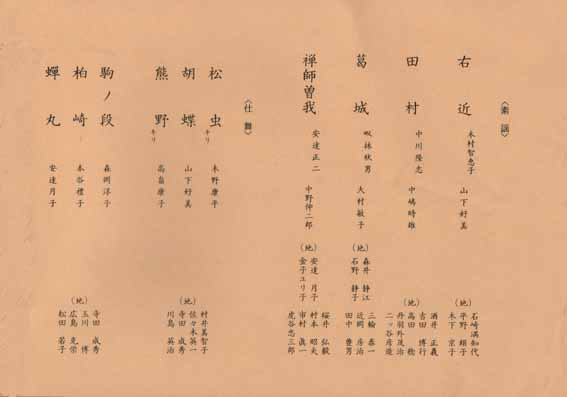 〈素謡〉
右近
木村智恵子　山下好美
(地)
石崎満知代
平野頼子
木下京子
田村
中川隆志　中嶋時雄
(地)
酒井正義
吉田博行
高田稔
丹羽外茂治
二ッ谷彦遊
葛城
呶抹秋男　大村敏子
(地)
森井静江
石野静子
三輪泰一
近岡房治
田中豊男
禅師曽我
安達正二　中野伸二郎
(地)
安達月子
金子ユリ子
桜井弘毅
村本昭夫
市村眞一
虎谷忠三郎
〈仕舞〉
松虫キリ　木野康平
胡蝶　山下好美
熊野キリ　高畠康子
(地)
村井萬智子
佐々木英一
寺田成秀
川島英治
駒ノ段　森岡淳子
柏崎　本谷禮子
蟬丸　安達月子
(地)
寺田成秀
玉川博
広島克栄
松田若子